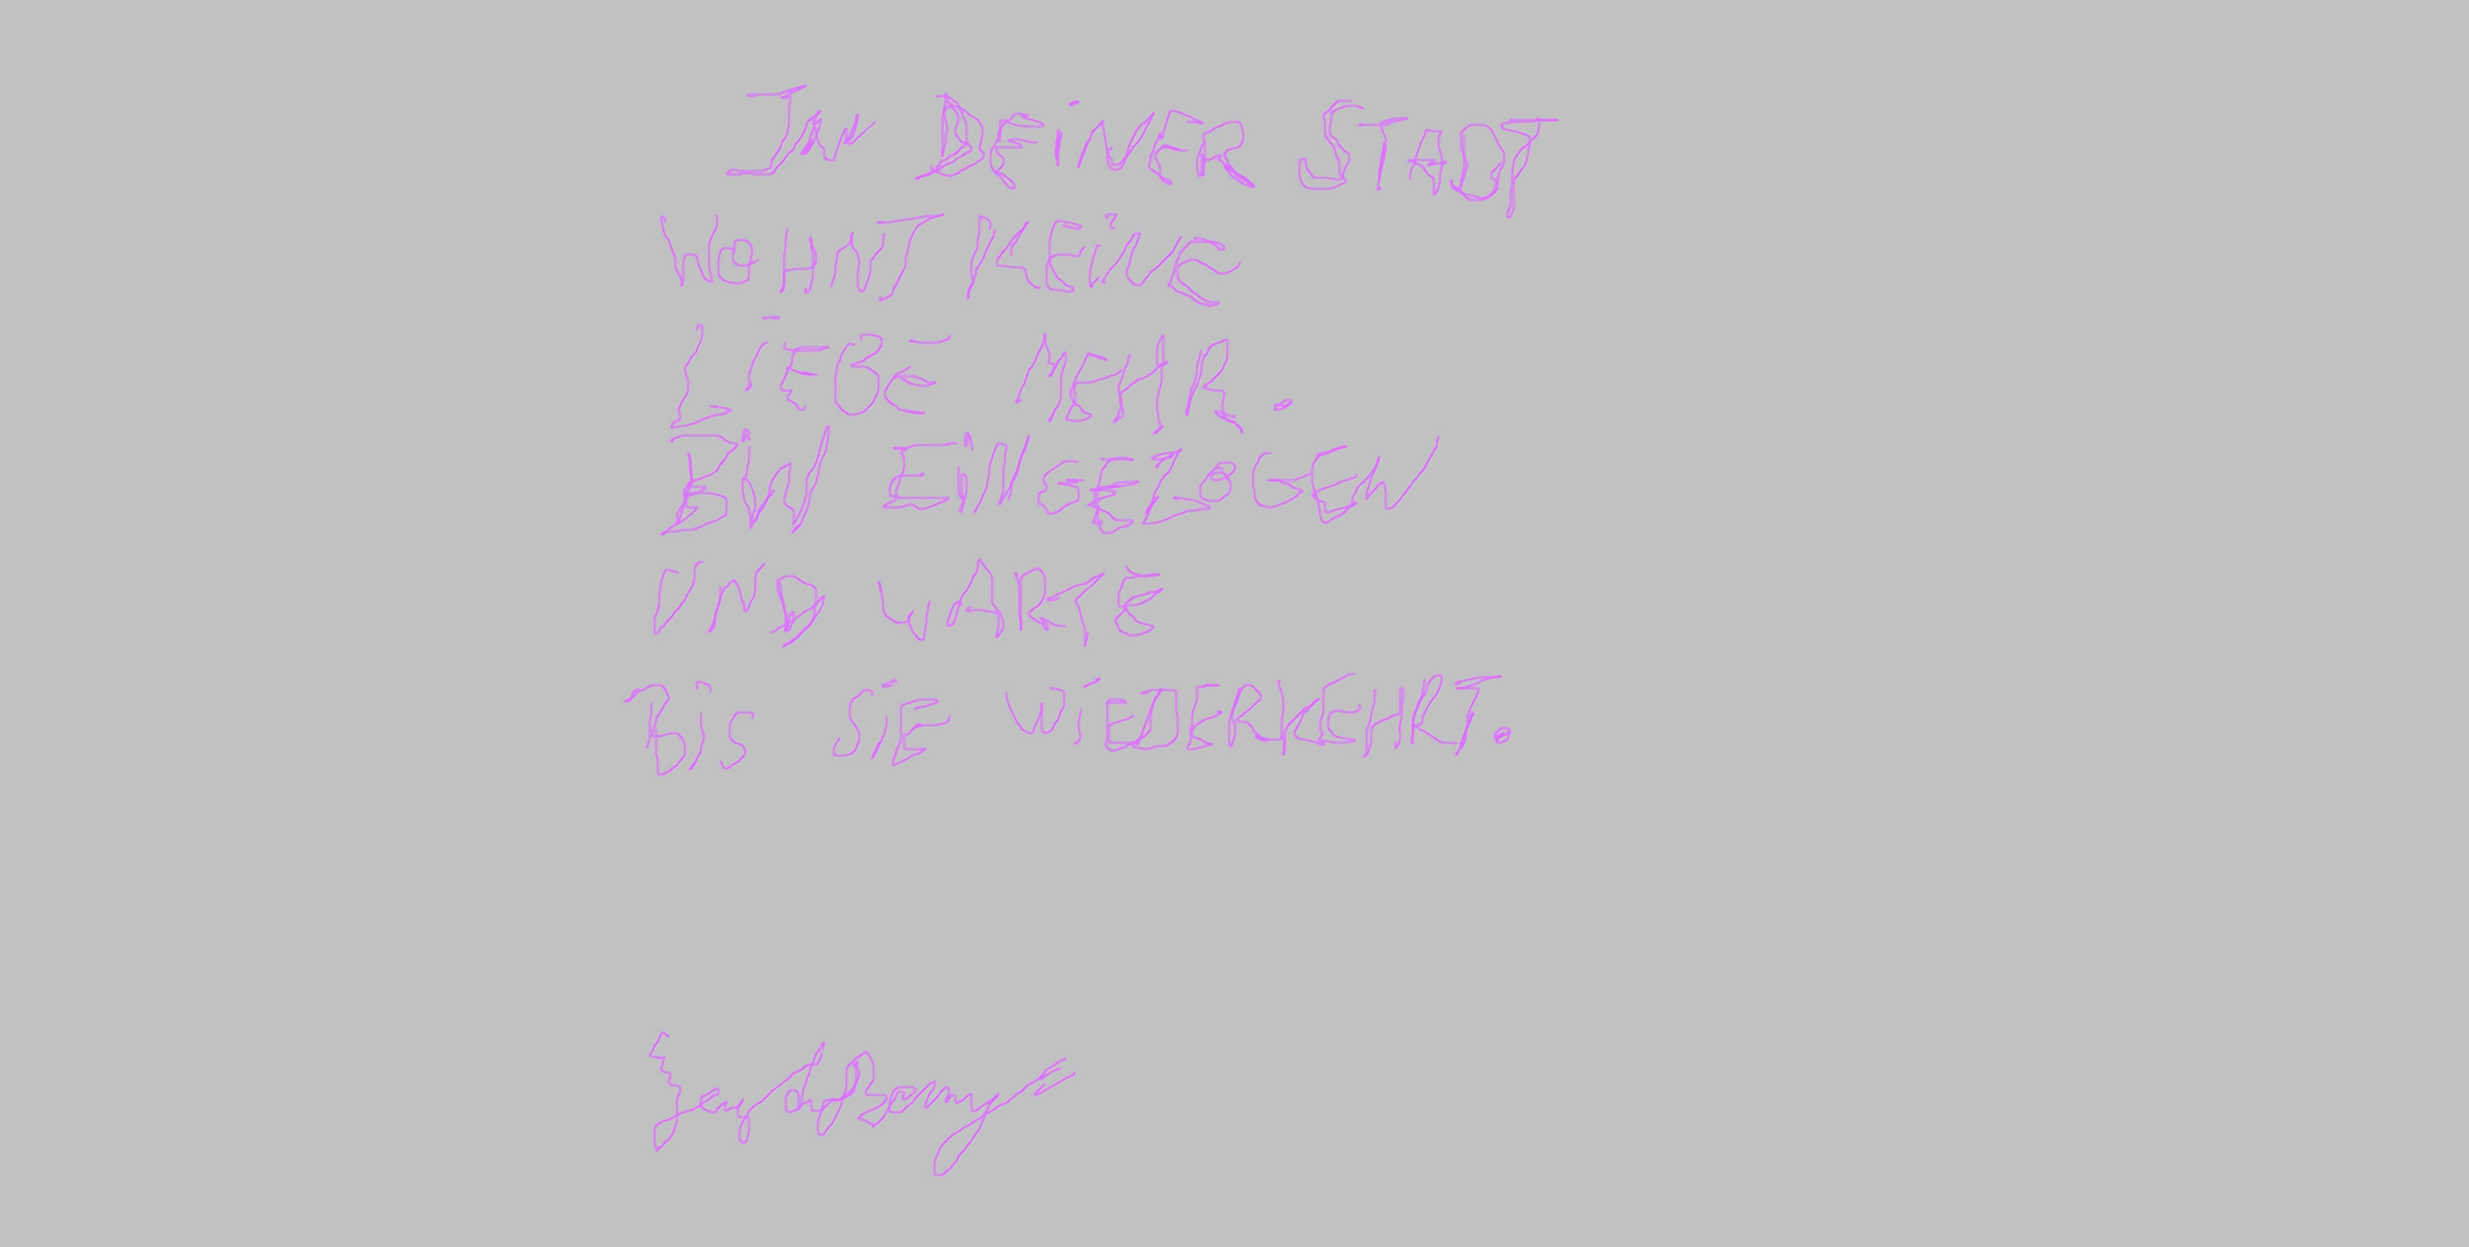 IN DEINER STADT
WOHNT KEINE
LIEBE MEHR.
BIN EINGEZOGEN
UND WARTE
BIS SIE WIEDERKEHRT.